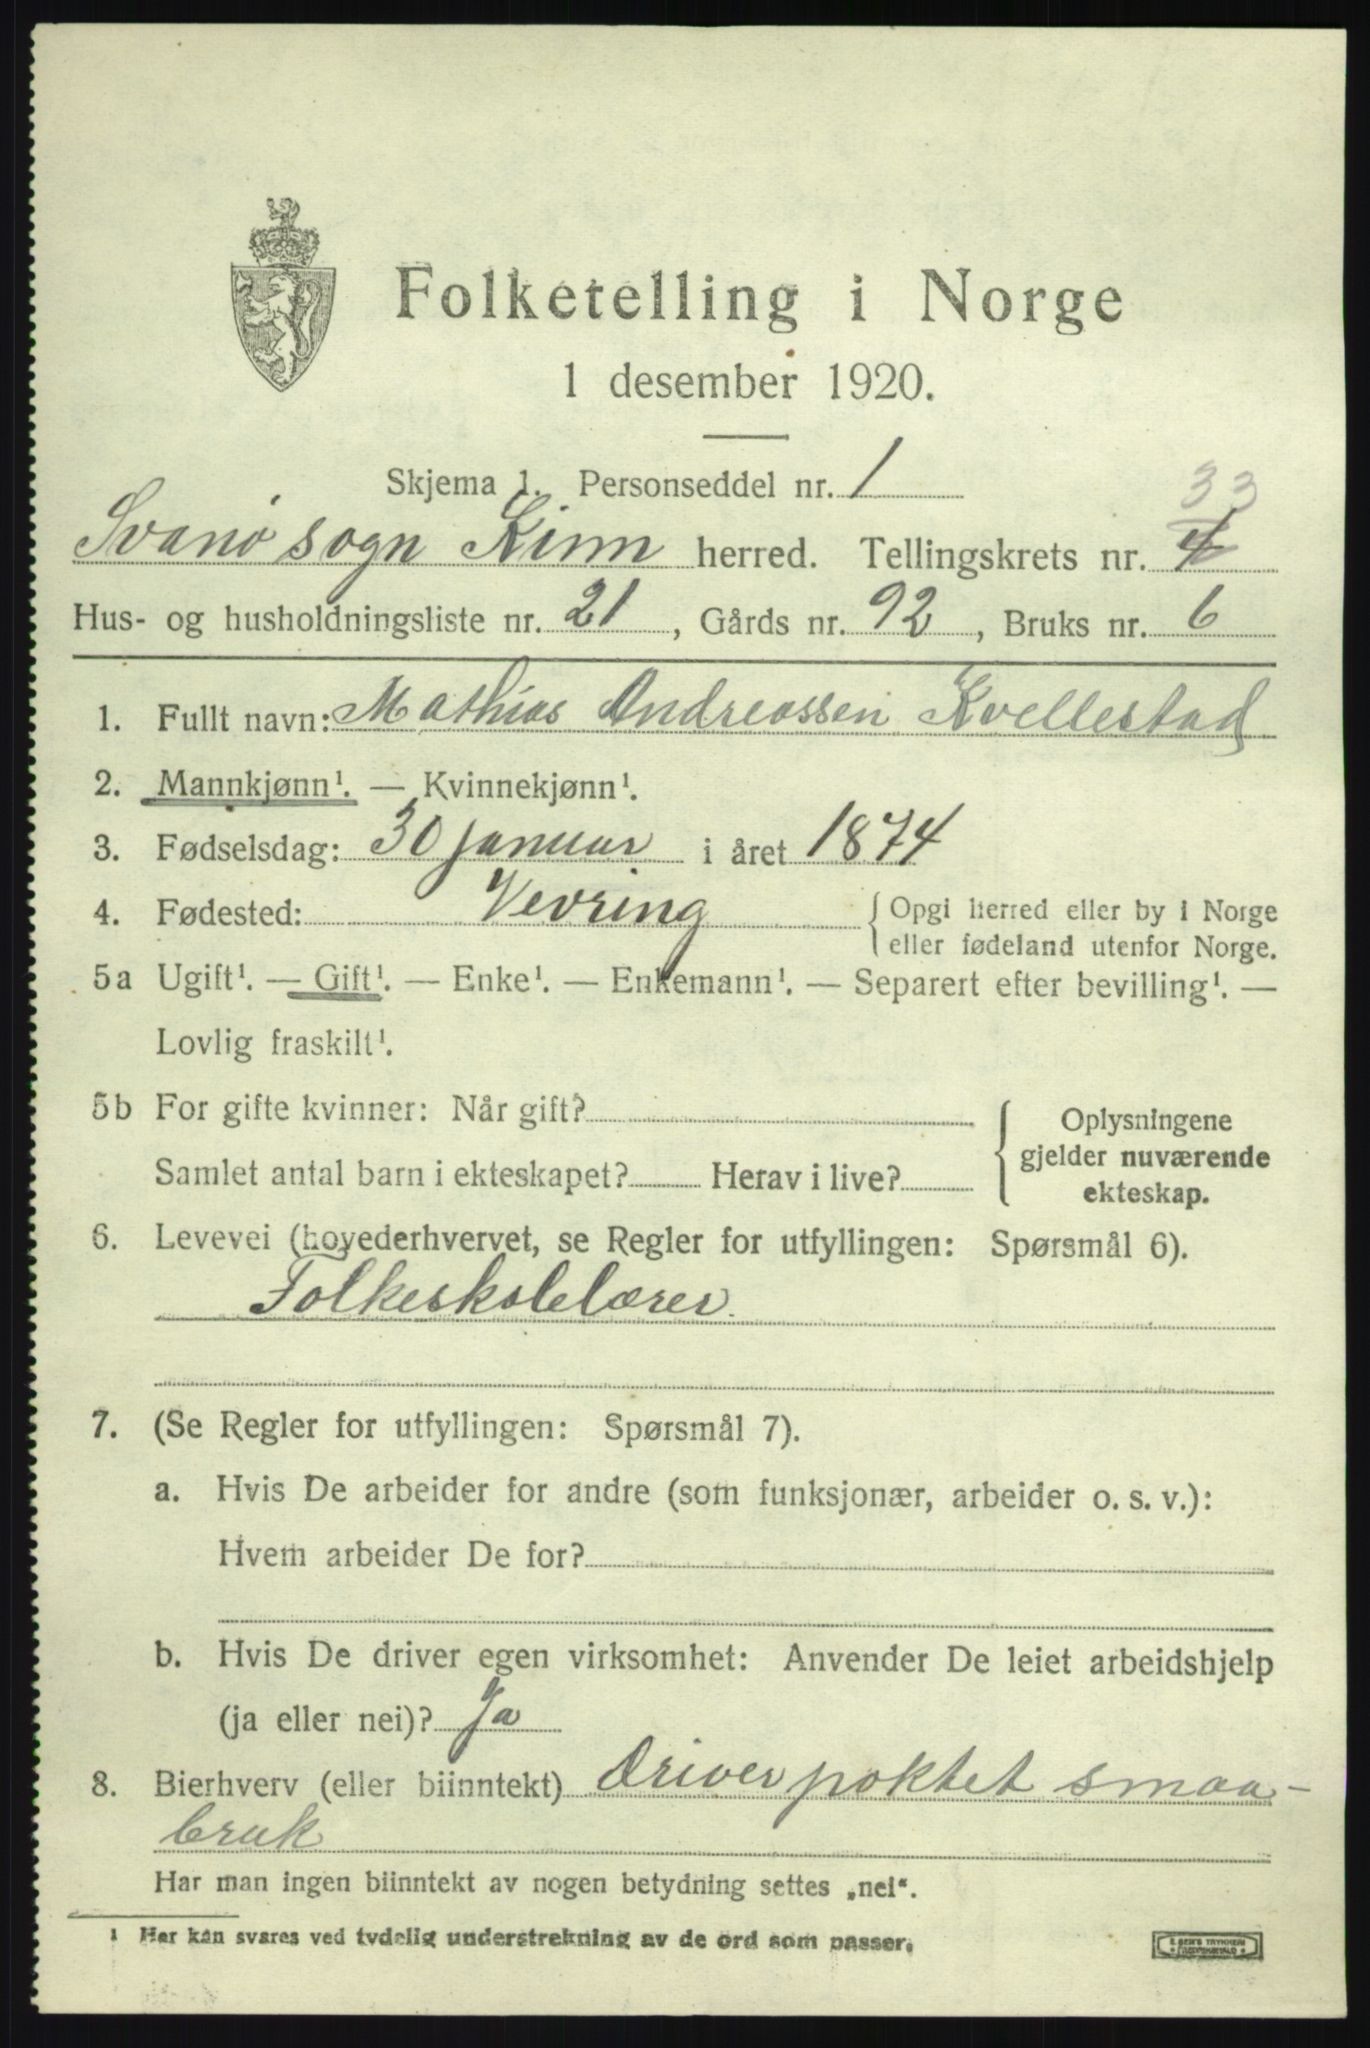 Folketelling i Norge
1 desember 1920.
Skjema 1. Personseddel nr. 1
33
Svanø sogn Kinn herred. Tellingskrets nr. 4
Hus- og husholdningsliste nr. 21, Gårds nr. 92, Bruks nr. 6
1. Fullt navn: Mathias Andreassen Kvellestad
2. Mannkjønn¹. — Kvinnekjønn¹.
3. Fødselsdag: 30 januar i året 1874
4. Fødested: Vevring { Opgi herred eller by i Norge
eller fødeland utenfor Norge.
5a Ugift¹. — Gift¹. — Enke¹. — Enkemann¹. — Separert efter bevilling¹. —
Lovlig fraskilt¹.
5b For gifte kvinner: Når gift?
Samlet antal barn i ekteskapet? Herav i live?
Oplysningene
gjelder nuværende
ekteskap.
6. Levevei (hovederhvervet, se Regler for utfyllingen: Spørsmål 6).
Folkeskolelærer.
7. (Se Regler for utfyllingen: Spørsmål 7).
a. Hvis De arbeider for andre (som funksjonær, arbeider o. s. v.):
Hvem arbeider De for?
b. Hvis De driver egen virksomhet: Anvender De leiet arbeidshjelp
(ja eller nei)? Ja
8. Bierhverv (eller biinntekt) Driver poktet smaa-
bruk
Har man ingen biinntekt av nogen betydning settes „nei“.
¹ Her kan svares ved tydelig understrekning av de ord som passer.